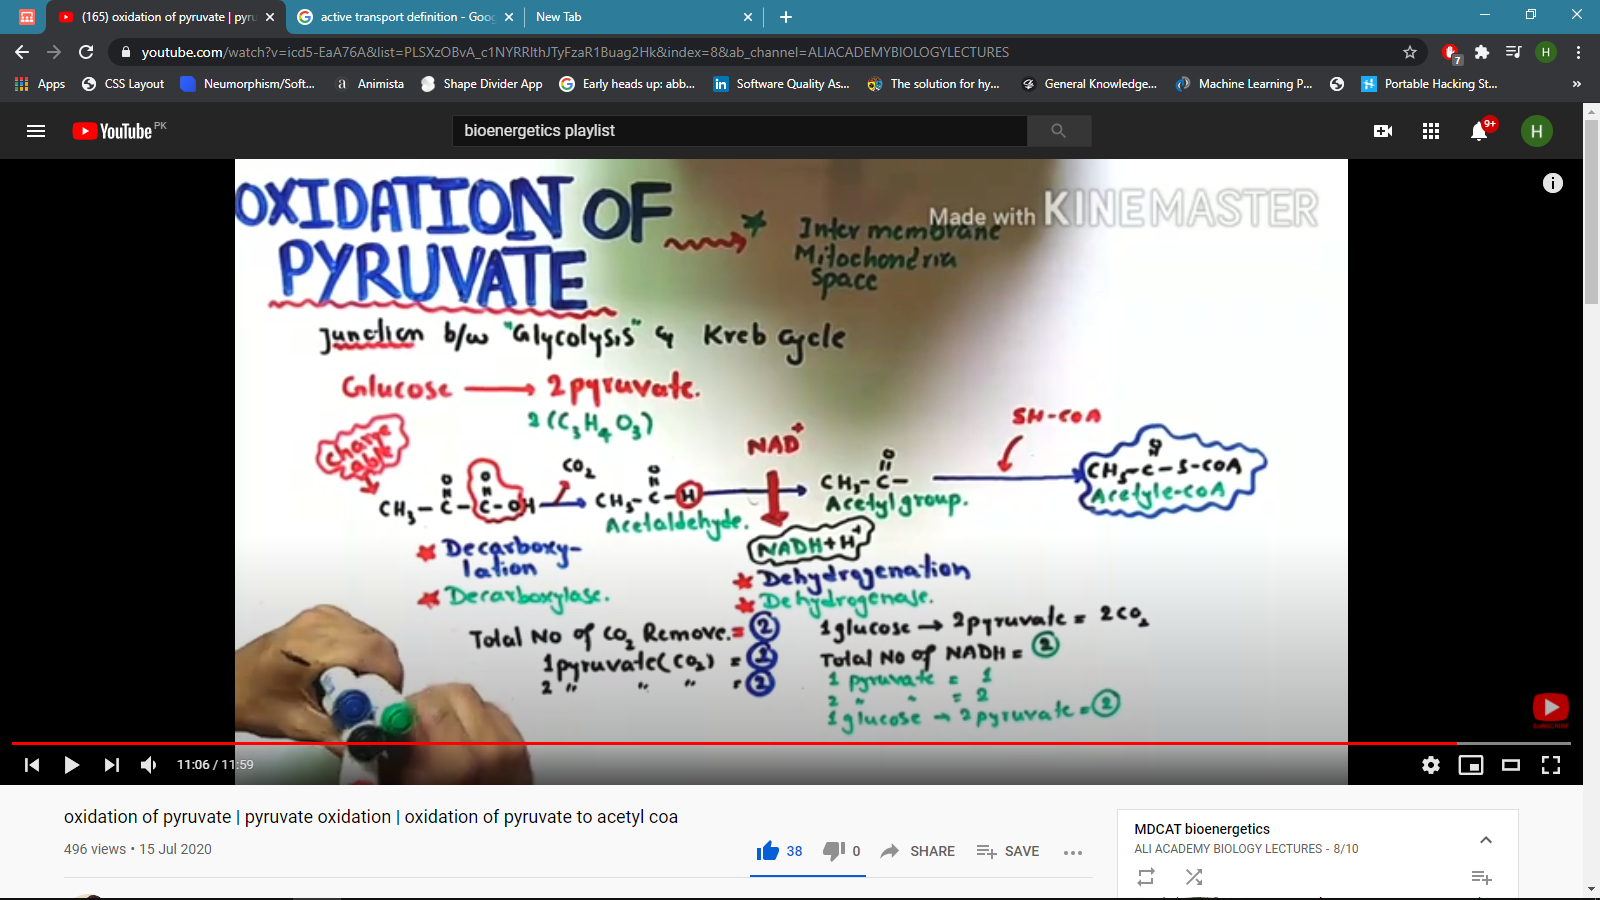 (165) oxidation of pyruvate | pyru
active transport definition - Goo
New Tab
youtube.com/watch?v=icd5-EaA76A&list=PLSXzOBvA_c1NYRRlthJTyFzaR1Buag2Hk&index=8&ab_channel=ALIACADEMYBIOLOGYLECTURES
7
H
Apps
CSS Layout
Neumorphism/Soft...
a Animista
Shape Divider App
Early heads up: abb...
Software Quality As...
The solution for hy...
General Knowledge...
Machine Learning P...
Portable Hacking St...
»
YouTube PK
bioenergetics playlist
9+
H
Made with KINEMASTER
OXIDATION OF
PYRUVATE
Inter membrane
Mitochondria
Space
Junction b/w "Glycolysis" & Kreb cycle
Glucose → 2 pyruvate.
2 (C3H4O3)
SH-COA
NAD+
CO2
CH3-C-C-OH
O O
CH3-C-H
O
Acetaldehyde.
CH3-C-
O
Acetyl group.
CH3-C-S-COA
O
Acetyle-COA
NADH+H+
★ Decarboxy-
lation
★ Decarboxylase.
★ Dehydrogenation
★ Dehydrogenase.
Total No of CO2 Remove.= 2
1 pyruvate(CO2) = 1
2 " " " = 2
1 glucose → 2 pyruvate = 2CO2
Total No of NADH = 2
1 pyruvate = 1
2 " " = 2
1 glucose → 2 pyruvate = 2
SUBSCRIBE
11:06 / 11:59
oxidation of pyruvate | pyruvate oxidation | oxidation of pyruvate to acetyl coa
496 views • 15 Jul 2020
38
0
SHARE
SAVE
MDCAT bioenergetics
ALI ACADEMY BIOLOGY LECTURES - 8/10